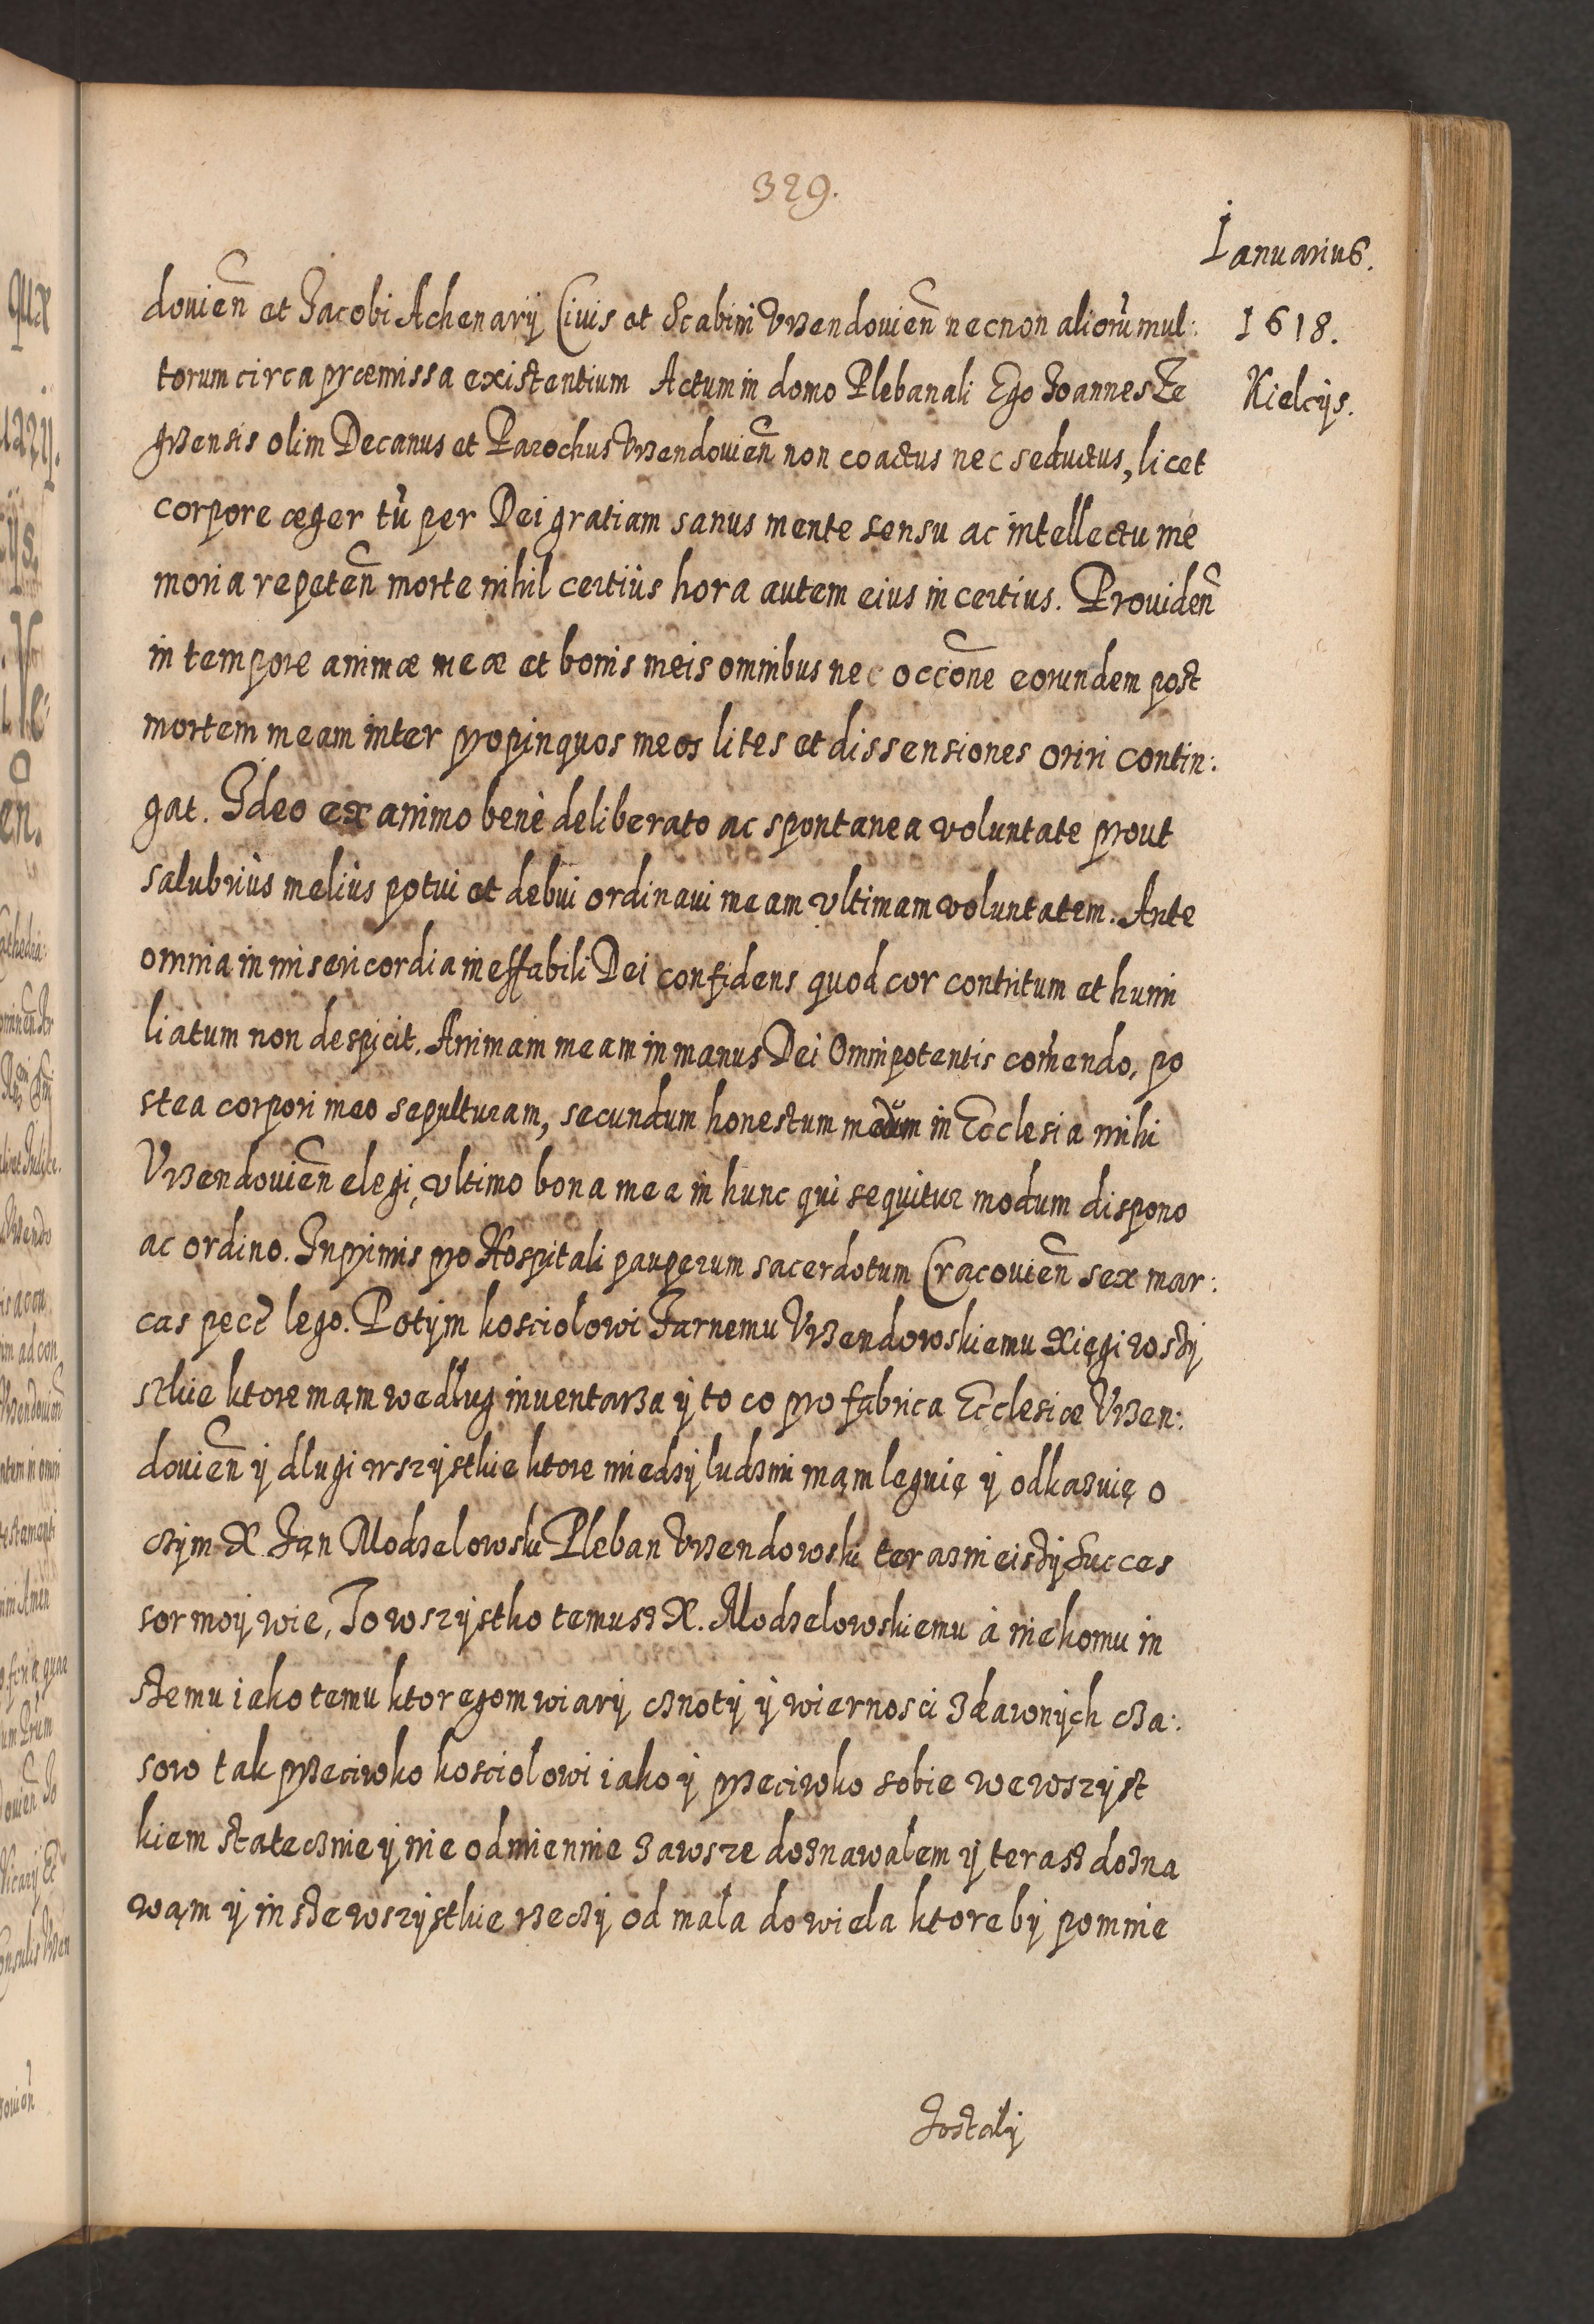 329.
Ianuarius.
1618.
Kielcijs.
douien̄ et Jacobi Achenarij Ciuis et Scabini Vrzendouien̄ necnon aliorū mul:
torum circa præmissa existentium Actum in domo Plebanali Ego Joannes Ze
grzensis olim Decanus et Parochus Vrzendouien̄ non coactus nec seductus, licet
corpore æger tū per Dei gratiam sanus mente sensu ac intellectu me
moria repeten̄ morte nihil certiùs hora autem eius incertius. Prouiden̄
in tempore animæ meæ et bonis meis omnibus nec occōne eorundem post
mortem meam inter propinquos meos lites et dissensiones oriri contin:
gat. Ideo ex animo benè deliberato ac spontanea voluntate prout
salubriùs meliùs potui et debui ordinaui meam vltimam voluntatem. Ante
omnia in misericordia ineffabili Dei confidens quod cor contritum et humi
liatum non despicit. Animam meam in manus Dei Omnipotentis com̄endo, po
stea corpori meo sepulturam, secundum honestum modum in Ecclesia mihi
Vrzendouien̄ elegi, vltimo bona mea in hunc qui sequitur modum dispono
ac ordino. Inprimis pro Hospitali pauperum sacerdotum Cracouien̄ sex mar:
cas pecc̄ lego. Potym kosciolowi Farnemu Vrzendowskiemu xięgi wszÿ
szkie ktore mąm wedlug inuentarza ÿ to co pro fabrica Ecclesiæ Vrzen:
douien̄ ÿ dlugi wszÿstkie ktore miedzÿ ludzmi mąm leguię ÿ odkazuię o
czÿm X. Jąn Modzelowski Pleban Vrzendowski teraznieiszÿ Succes
sor moÿ wie, To wszÿstko temusz X. Modzelowskiemu à niekomu in
szemu iako temu ktoregom wiarÿ cznotÿ ÿ wiernosci zdawnÿch cza:
sow tak przeciwko kosciolowi iako ÿ przeciwko sobie wewszÿst
kiem statecznie ÿ nie odmiennie zawsze doznawalem ÿ terasz dozna
wąm ÿ insze wszÿstkie rzeczÿ od mala do wiela ktore bÿ pomnie
zostalÿ